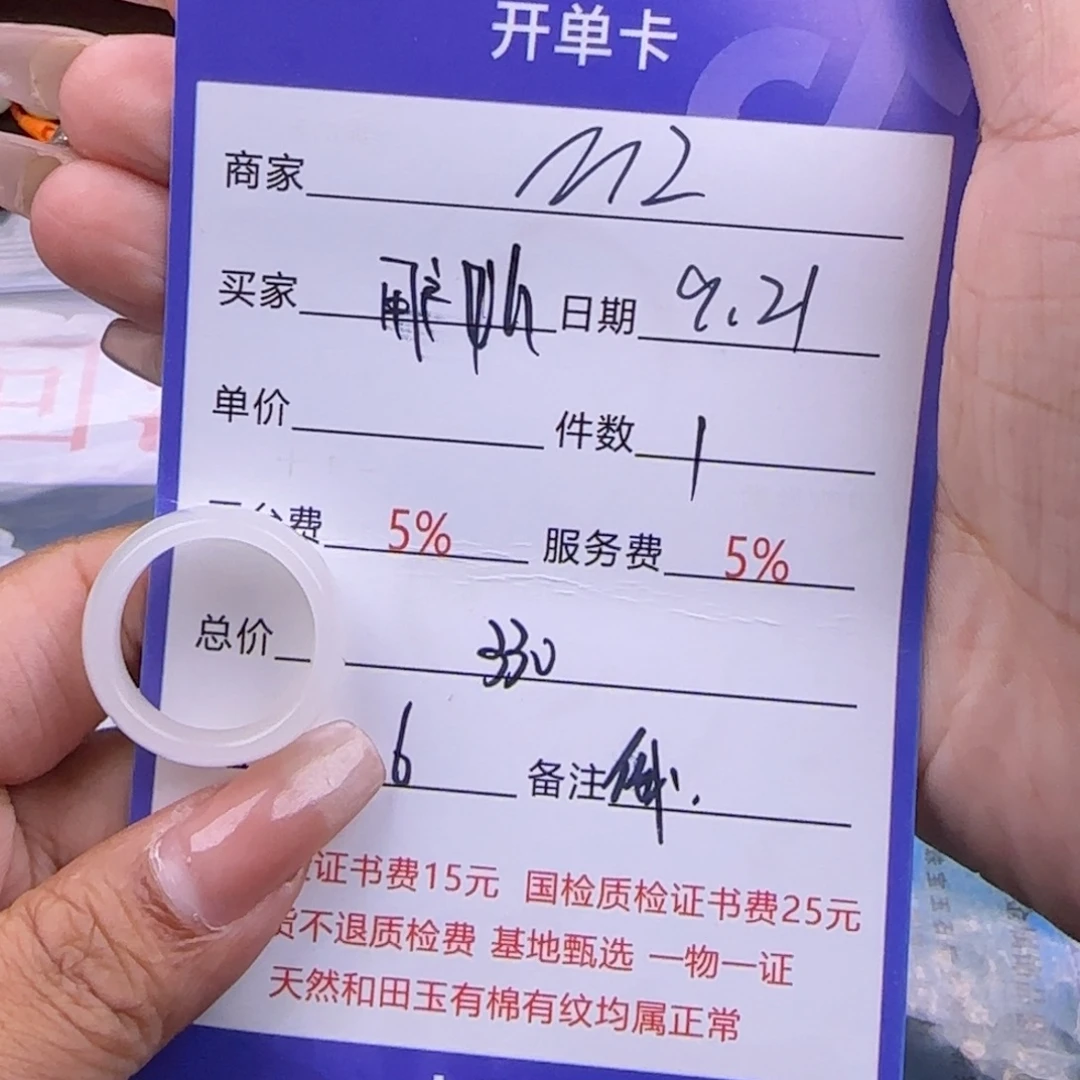 开单卡
商家 M2
买家 日期 9.21
单价 件数 1
费 5% 服务费 5%
总价 330
6 备注
证书费15元 国检质检证书费25元
货不退质检费 基地甄选 一物一证
天然和田玉有棉有纹均属正常